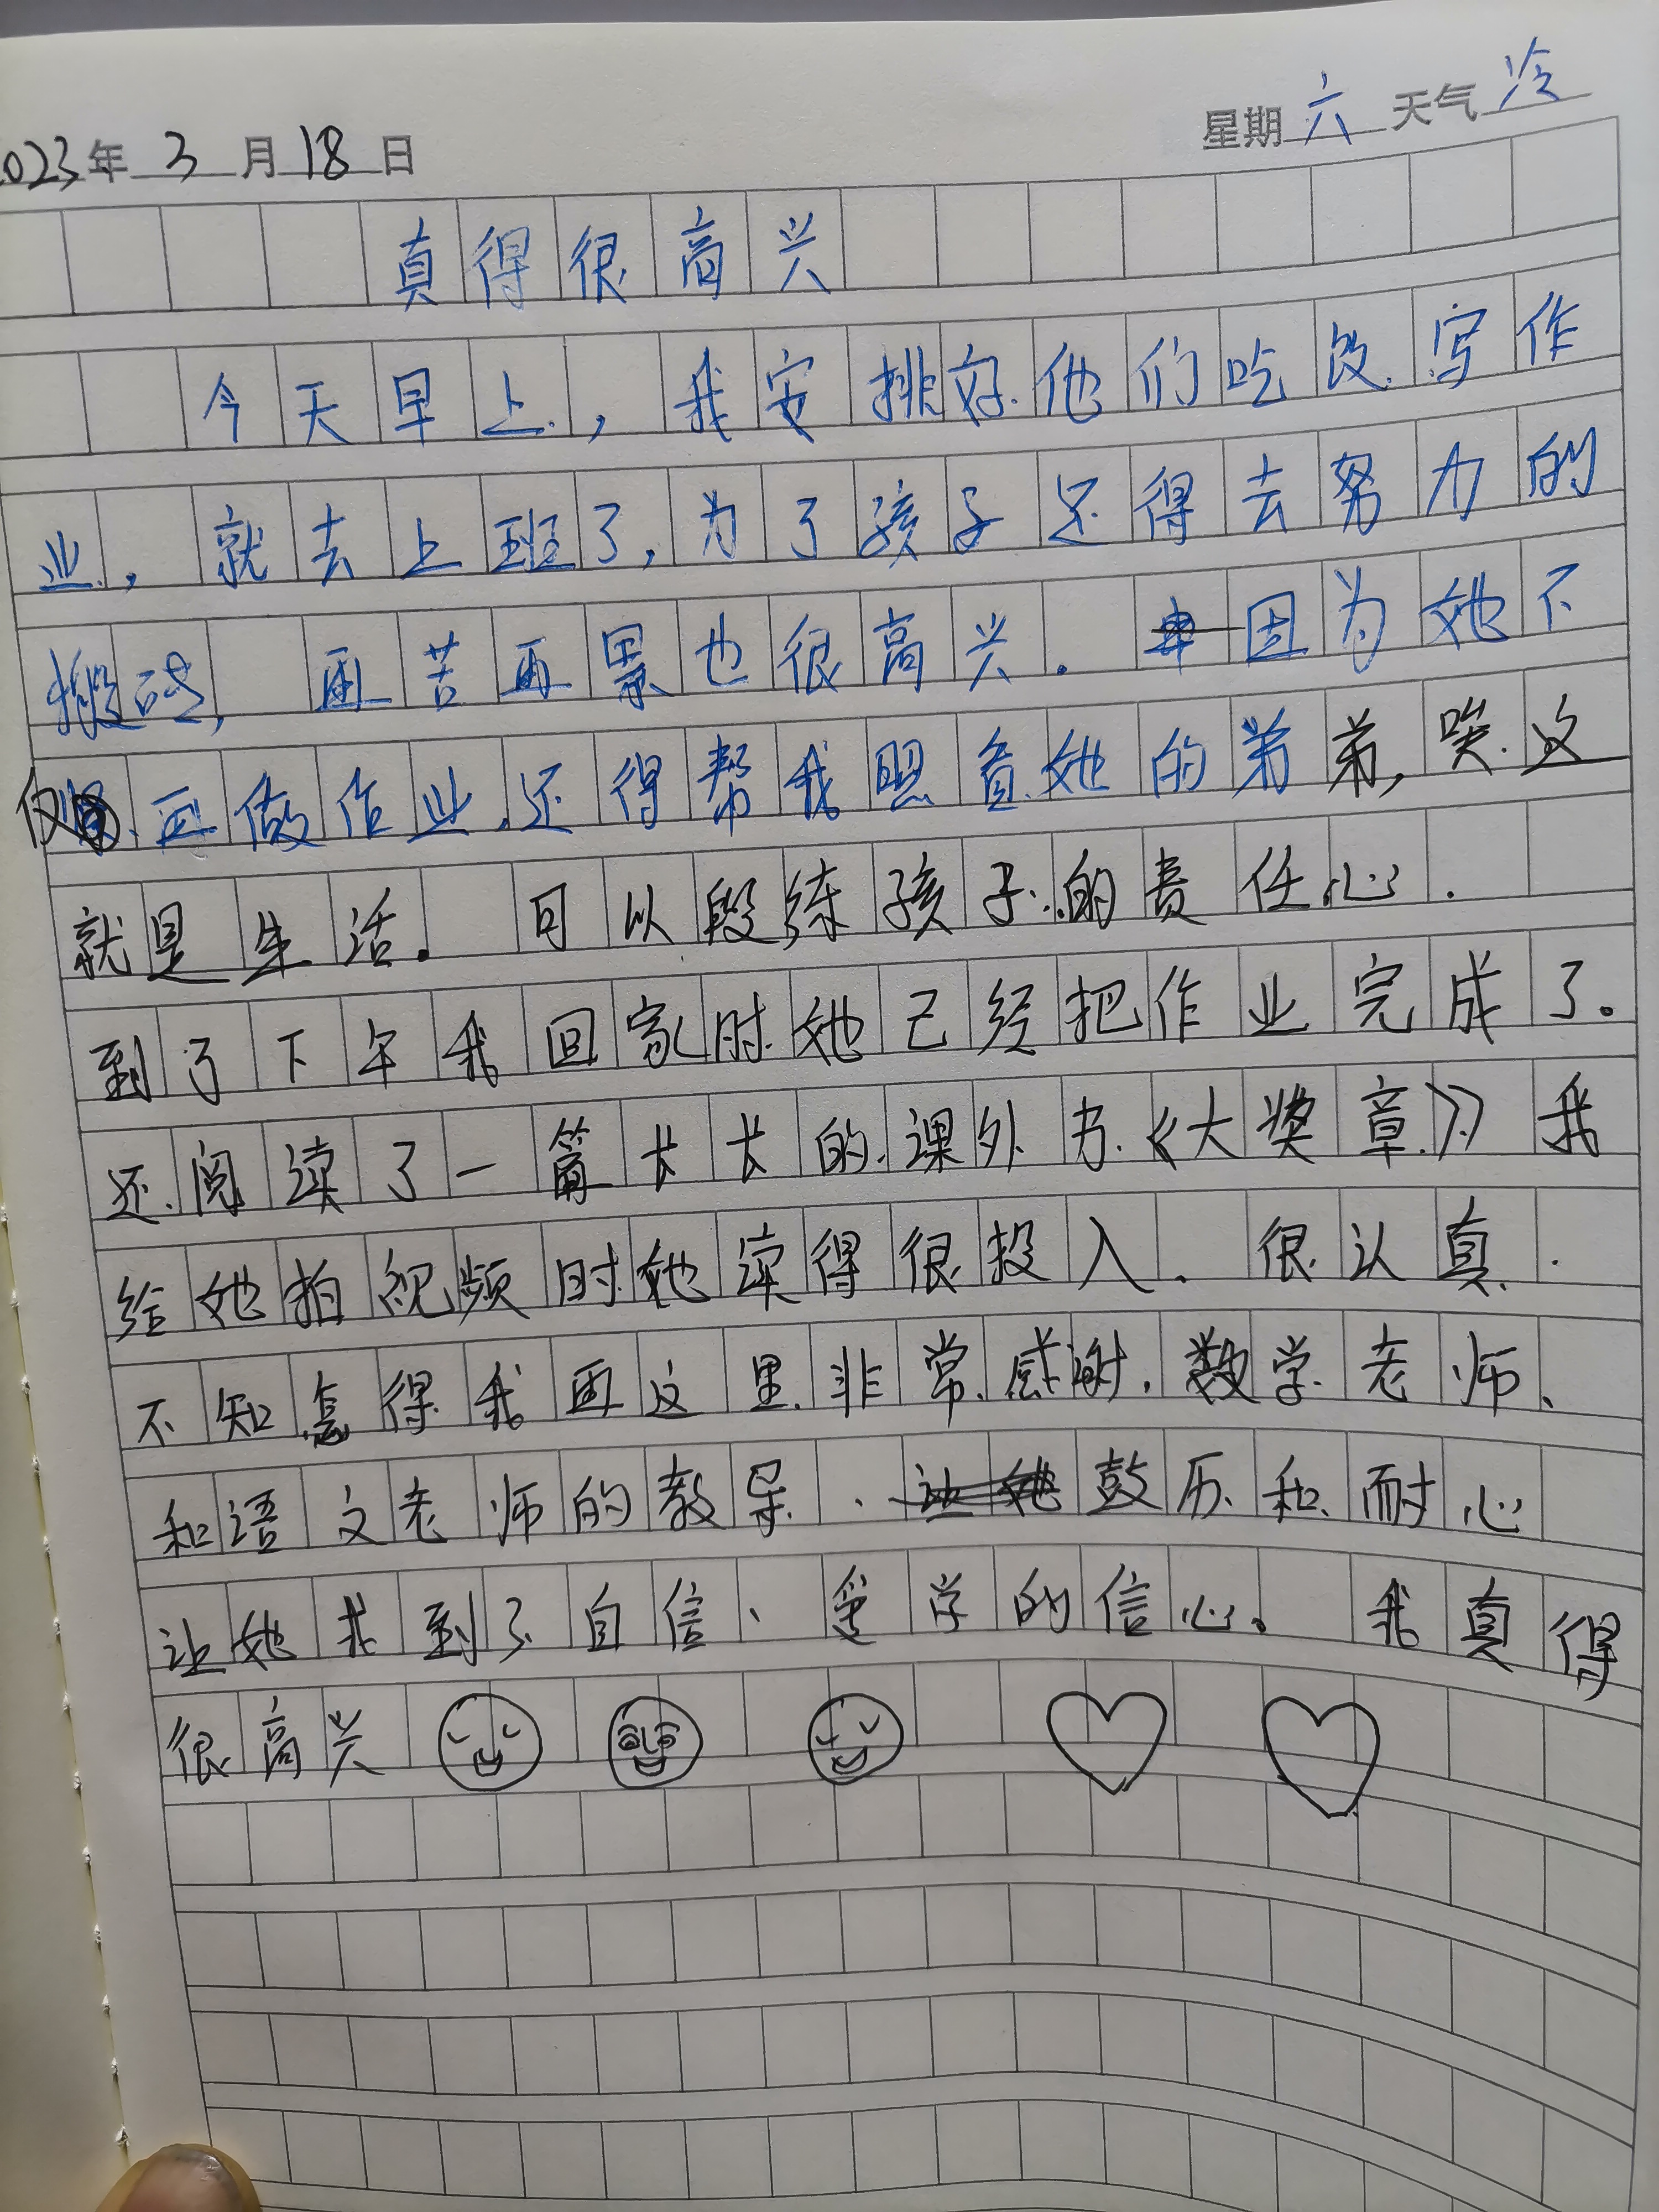 2023年 3 月 18 日 星期 六 天气 冷
真得很高兴
今天早上，我安排好他们吃饭写作
业，就去上班了，为了孩子还得去努力的
搬砖，再苦再累也很高兴。因为她不
仅要做作业，还得帮我照看她的弟弟，唉这
就是生活。可以段练孩子的责任心.
到了下午我回家时她已经把作业完成了。
还阅读了一篇长长的课外书《大奖章》我
给她拍视频时她读得很投入、很认真.
不知怎得我再这里非常感谢，数学老师、
和语文老师的教导、鼓历和耐心
让她找到了自信、爱学的信心。我真得
很高兴